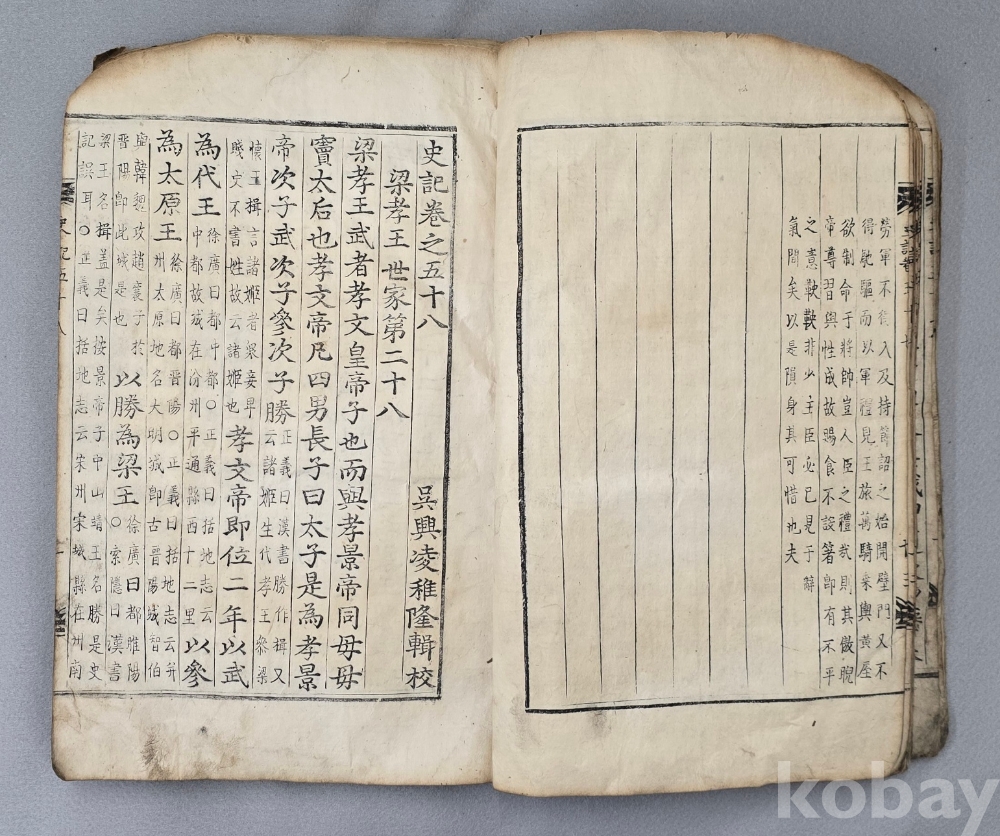 勞軍不得入及持節詔之始開壁門又不
得馳驅而以軍禮見王旅萬騎来輿黃屋
欲制命于將帥豈人臣之禮哉則其傲睨
帝尊習與性成故賜食不設箸卽有不平
之意鞅鞅非少主臣必已見于辭
氣間矣以是隕身其可惜也夫
史記卷之五十八 吳興凌稚隆輯校
梁孝王世家第二十八
梁孝王武者孝文皇帝子也而與孝景帝同母母
竇太后也孝文帝凡四男長子曰太子是為孝景
帝次子武次子參次子勝正義曰漢書勝作揖又云諸姬生代孝王參梁
懷王揖言諸姬者衆妾卑賤史不書姓故云諸姬也孝文帝即位二年以武
為代王徐廣曰都中都○正義曰括地志云中都故城在汾州平通縣西十二里以參
為太原王徐廣曰都晉陽○正義曰括地志云并州太原地名大明城卽古晉陽城智伯
與韓魏攻趙襄子於晉陽卽此城是也以勝為梁王徐廣曰都睢陽○索隱曰漢書
梁王名揖盖是矣按景帝子中山靖王名勝是史
記誤耳○正義曰括地志云宋州宋城縣在州南
史記五十八
kobay